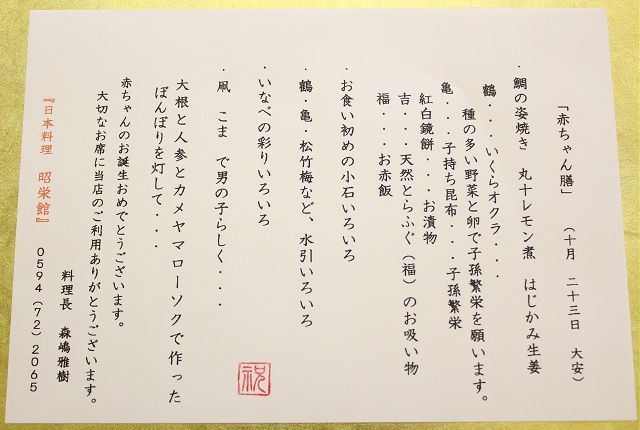 「赤ちゃん膳」 （十月 二十三日 大安）
・鯛の姿焼き 丸十レモン煮 はじかみ生姜
鶴・・・・いくらオクラ・・・
種の多い野菜と卵で子孫繁栄を願います。
亀・・・・子持ち昆布・・・子孫繁栄
紅白鏡餅・・・・お漬物
吉・・・天然とらふぐ（福）のお吸い物
福・・・・お赤飯
・お食い初めの小石いろいろ
・鶴・亀・松竹梅など、水引いろいろ
・いなべの彩りいろいろ
・凧 こま で男の子らしく・・・
大根と人参とカメヤマローソクで作った
ぼんぼりを灯して・・・
赤ちゃんのお誕生おめでとうございます。
大切なお席に当店のご利用ありがとうございます。
料理長 森嶋雅樹
『日本料理 昭栄館』 0594(72)2065
祝